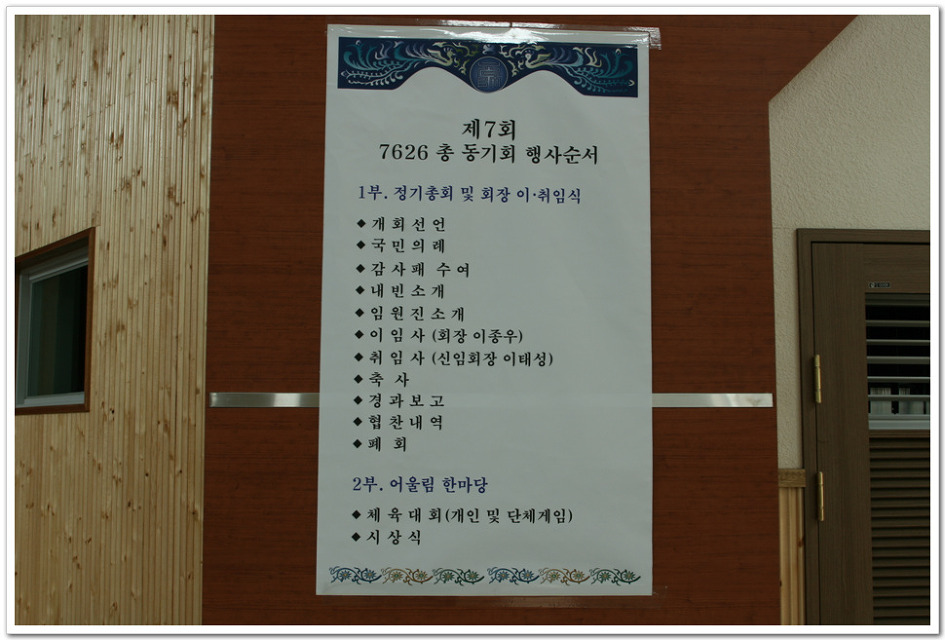 제7회
7626 총 동기회 행사순서
1부. 정기총회 및 회장 이·취임식
◆ 개 회 선 언
◆ 국 민 의 례
◆ 감 사 패 수 여
◆ 내 빈 소 개
◆ 임 원 진 소 개
◆ 이 임 사 (회장 이종우)
◆ 취 임 사 (신임회장 이태성)
◆ 축 사
◆ 경 과 보 고
◆ 협 찬 내 역
◆ 폐 회
2부. 어울림 한마당
◆ 체 육 대 회(개인 및 단체게임)
◆ 시 상 식